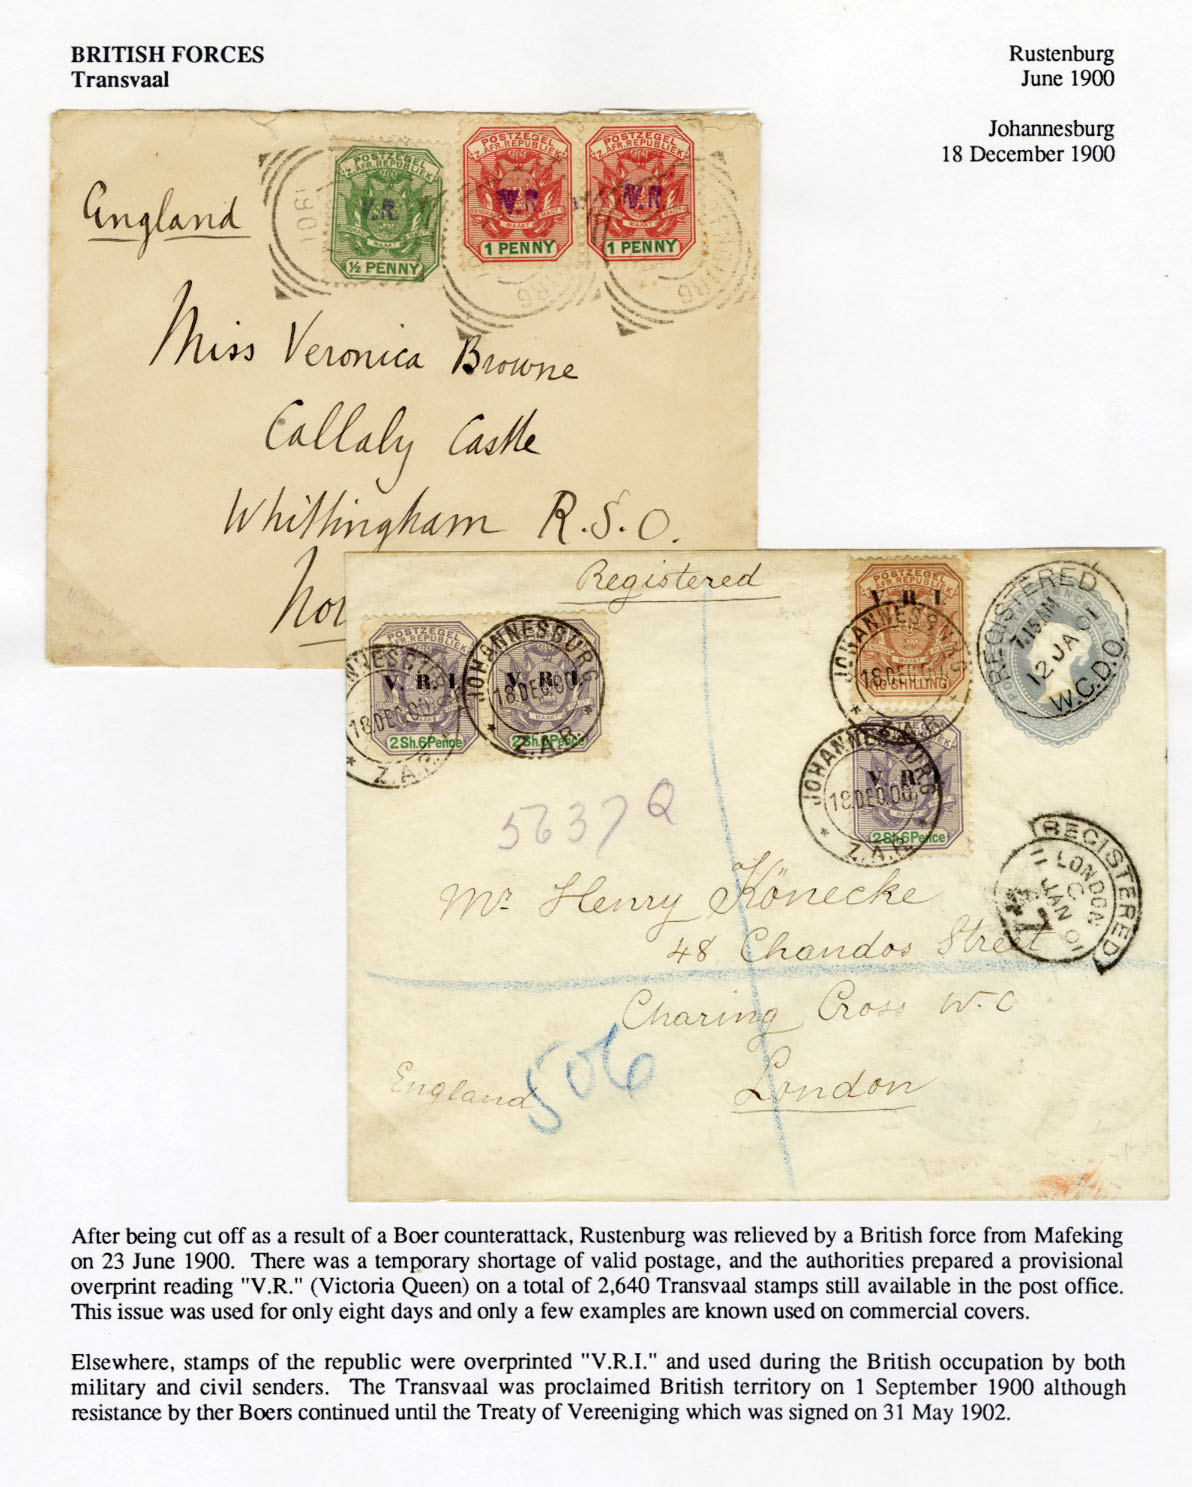 BRITISH FORCES
Transvaal
Rustenburg
June 1900
Johannesburg
18 December 1900
England
POSTZEGEL
Z. AFR. REPUBLIEK
V.R.
½ PENNY
POSTZEGEL
Z. AFR. REPUBLIEK
V.R
1 PENNY
POSTZEGEL
Z. AFR. REPUBLIEK
V.R
1 PENNY
Miss Veronica Browne
Callaly Castle
Whittingham R.S.O.
Registered
POSTZEGEL
Z. AFR. REPUBLIEK
V. R. I.
2Sh.6Pence
JOHANNESBURG
18 DEC.00
Z.A.R.
V. R. I.
2Sh.6Pence
JOHANNESBURG
18 DEC.00
Z.A.R.
POSTZEGEL
Z. AFR. REPUBLIEK
V. R. I
SHILLING
JOHANNESBURG
18 DEC.00
Z.A.R.
V. R. I
2Sh.6Pence
JOHANNESBURG
18 DEC.00
Z.A.R.
REGISTERED
7.15 AM
12 JA 01
W.C.D.O.
REGISTERED
LONDON
C
11 JAN 01
7
5637 Q
Mr Henry Könecke
48 Chandos Street
Charing Cross W.C
London
England
506
After being cut off as a result of a Boer counterattack, Rustenburg was relieved by a British force from Mafeking
on 23 June 1900. There was a temporary shortage of valid postage, and the authorities prepared a provisional
overprint reading "V.R." (Victoria Queen) on a total of 2,640 Transvaal stamps still available in the post office.
This issue was used for only eight days and only a few examples are known used on commercial covers.
Elsewhere, stamps of the republic were overprinted "V.R.I." and used during the British occupation by both
military and civil senders. The Transvaal was proclaimed British territory on 1 September 1900 although
resistance by ther Boers continued until the Treaty of Vereeniging which was signed on 31 May 1902.